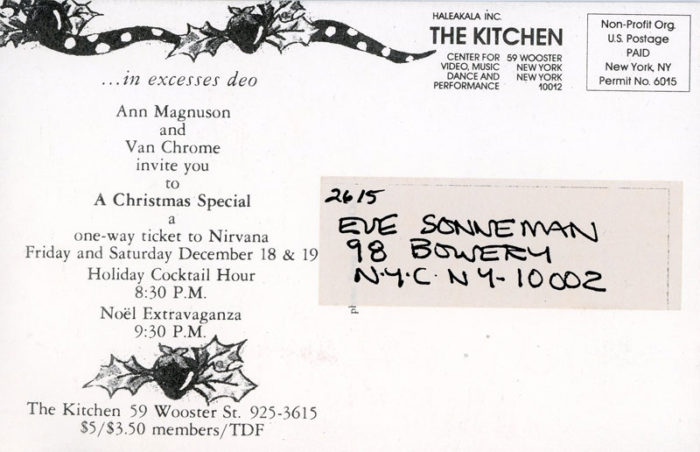 ...in excesses deo
Ann Magnuson
and
Van Chrome
invite you
to
A Christmas Special
a
one-way ticket to Nirvana
Friday and Saturday December 18 & 19
Holiday Cocktail Hour
8:30 P.M.
Noël Extravaganza
9:30 P.M.
The Kitchen 59 Wooster St. 925-3615
$5/$3.50 members/TDF
HALEAKALA INC.
THE KITCHEN
CENTER FOR 59 WOOSTER
VIDEO, MUSIC NEW YORK
DANCE AND NEW YORK
PERFORMANCE 10012
Non-Profit Org.
U.S. Postage
PAID
New York, NY
Permit No. 6015
2615
EVE SONNEMAN
98 BOWERY
N.Y.C. NY-10002